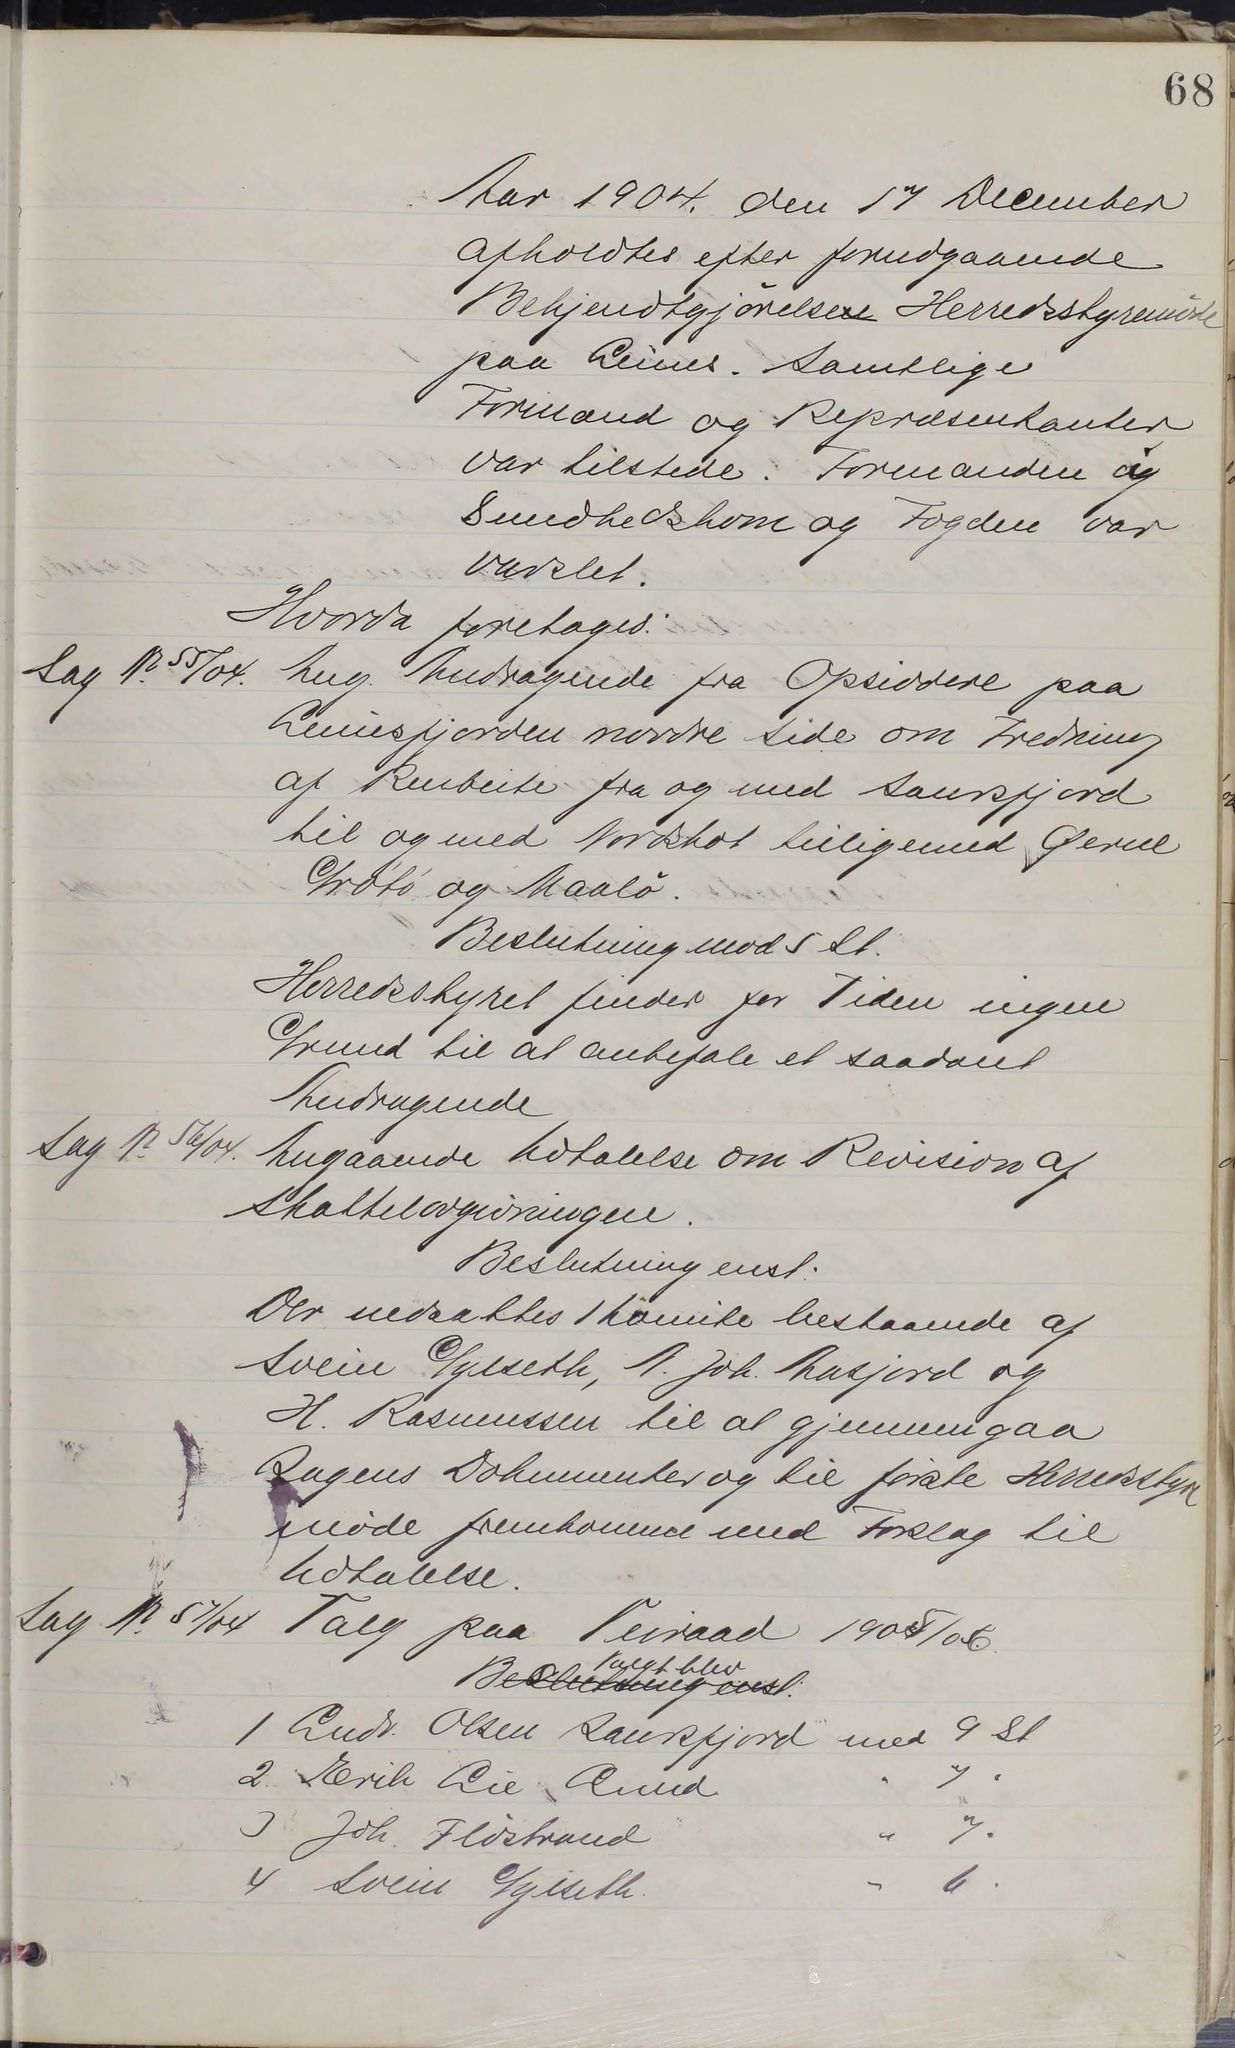 68
Aar 1904. den 17 December
afholdtes efter forudgaaende
Bekjendtgjörelse Herredsstyremöde
paa Leines. Samtlige
Formænd og Repræsentanter
var tilstede. Formanden og
Sundhedskom og Fogden var
varslet.
Hvorda foretoges:
Sag № 55/04. Ang. Andragende fra Opsiddere paa
Leinesfjorden nordre Side om Fredning
af Renbeite fra og med Laurfjord
til og med Nordskot tilligemed Öerne
Grötö og Maalö.
Beslutning mod 5 St.
Herredsstyret finder for Tiden ingen
Grund til at anbefale et saadant
Andragende
Sag № 56/04. Angaaende Udtalelse om Revision af
Skattelovgivningen.
Beslutning enst:
Der nedsattes 1 Komite bestaaende af
Svein Gylseth, A. Joh. Aasjord og
H. Rasmussen til at gjennemgaa
Sagens Dokumenter og til förste Herredsstyre
möde fremkomme med Forslag til
Udtalelse.
Sag № 57/04 Valg paa Veiraad 1905/06.
Valgt blev
Beslutning enst:
1 Andr. Olsen Laurfjord med 9 St
2. Erik Lie Lund " 7 "
3 Joh. Flöstrand " 7.
4 Svein Gylseth. " 6.